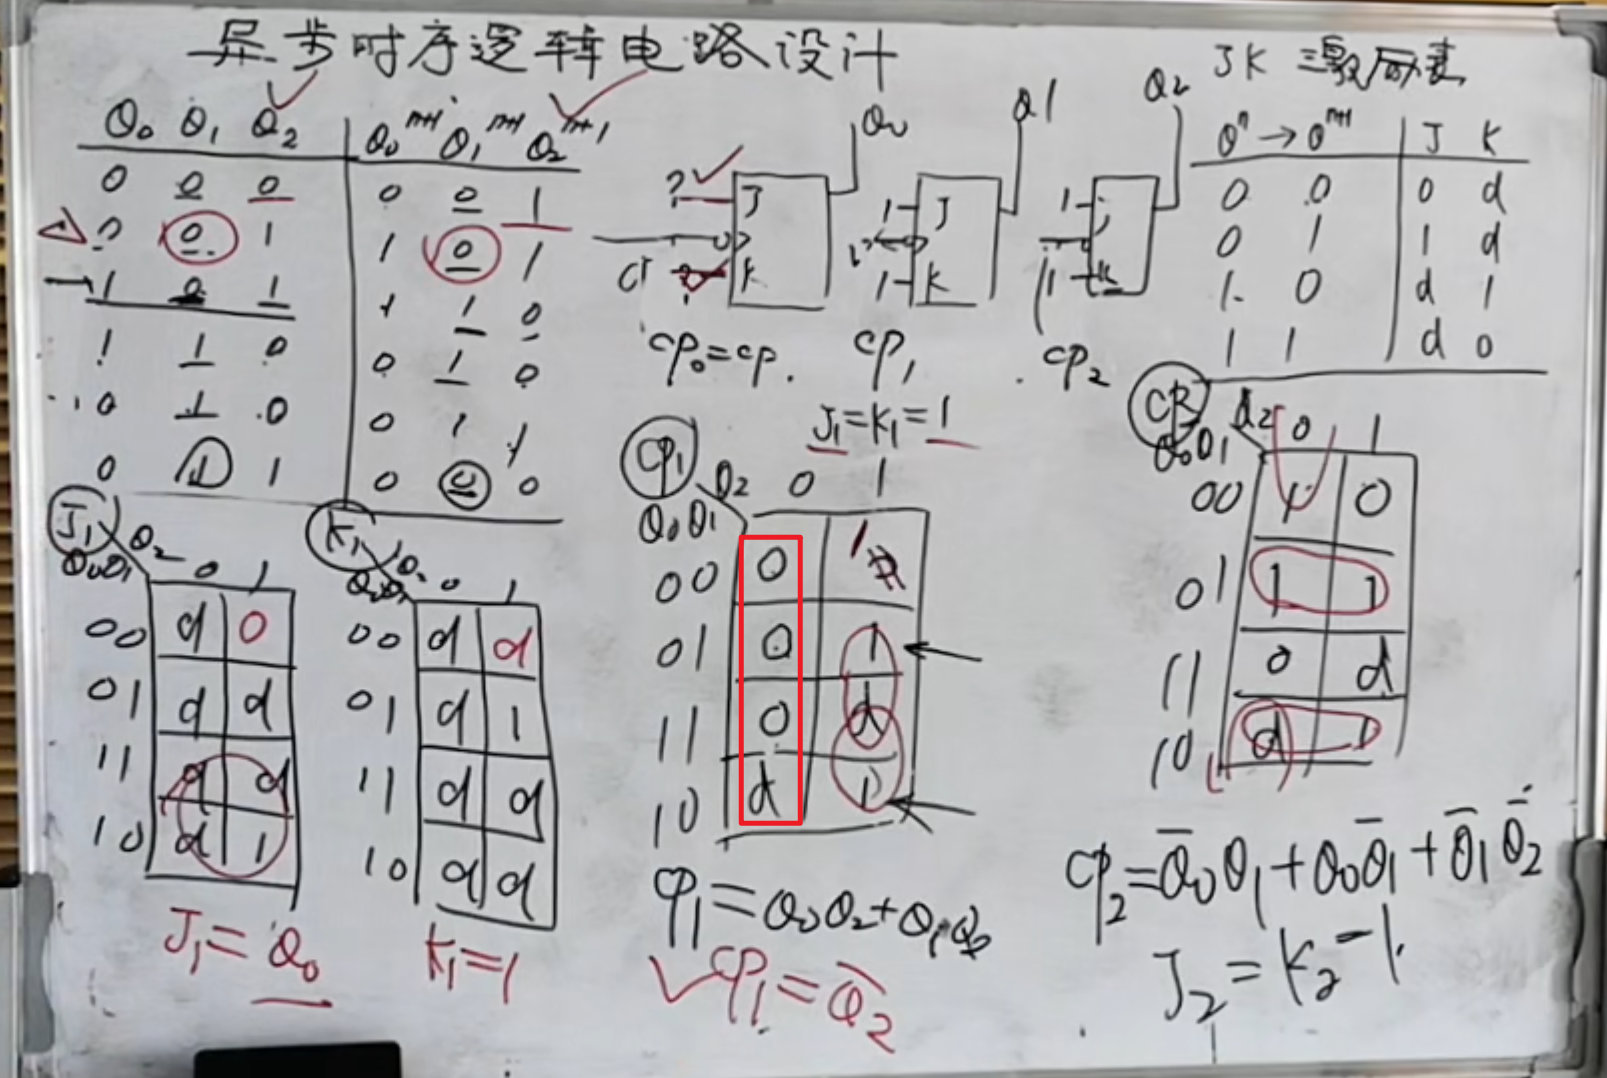 异步时序逻辑电路设计
Q0 Q1 Q2 Q0^{n+1} Q1^{n+1} Q2^{n+1}
0 0 0 0 0 1
0 0 1 1 0 1
1 0 1 1 1 0
1 1 0 0 1 0
0 1 0 0 1 1
0 1 1 0 0 0
Q0
? J
CP ? K
CP0=CP.
Q1
1 J
1 K
CP1
J1=K1=1
Q2
1 J
1 K
CP2
JK 激励表
Q^n → Q^{n+1} J K
0 0 0 d
0 1 1 d
1 0 d 1
1 1 d 0
J1 Q2
Q0Q1 0 1
00 d 0
01 d d
11 d d
10 d 1
J1=Q0
K1 Q2
Q0Q1 0 1
00 d d
01 d 1
11 d d
10 d d
K1=1
CP1 Q2 0 1
Q0Q1
00 0 1
01 0 1
11 0 d
10 d 1
CP1=Q0Q2+Q1Q2
CP1=Q̅2
CP2 Q2 0 1
Q0Q1
00 1 0
01 1 1
11 0 d
10 d 1
CP2=Q̅0Q1+Q0Q̅1+Q̅1Q̅2
J2=K2=1.